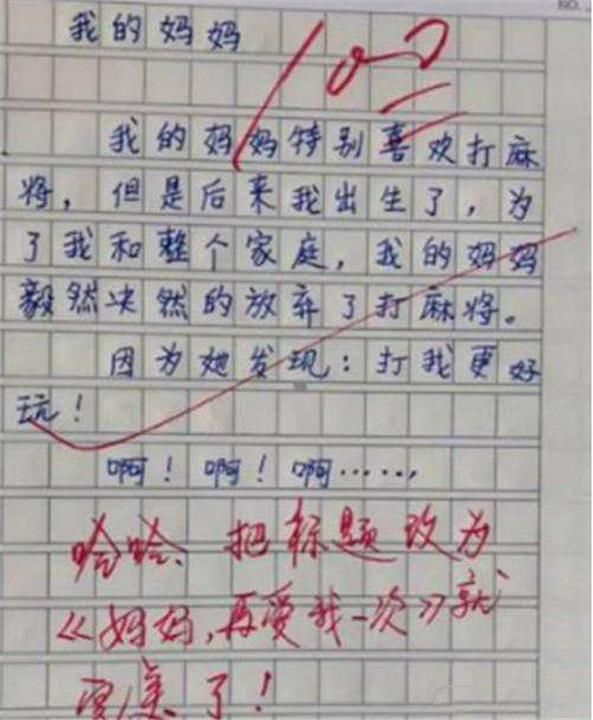 NO.
我的妈妈
100
我的妈妈特别喜欢打麻
将，但是后来我出生了，为
了我和整个家庭，我的妈妈
毅然决然的放弃了打麻将。
因为她发现：打我更好
玩！
啊！啊！啊……，
哈哈、把标题改为
《妈妈，再爱我一次》就
完美了！